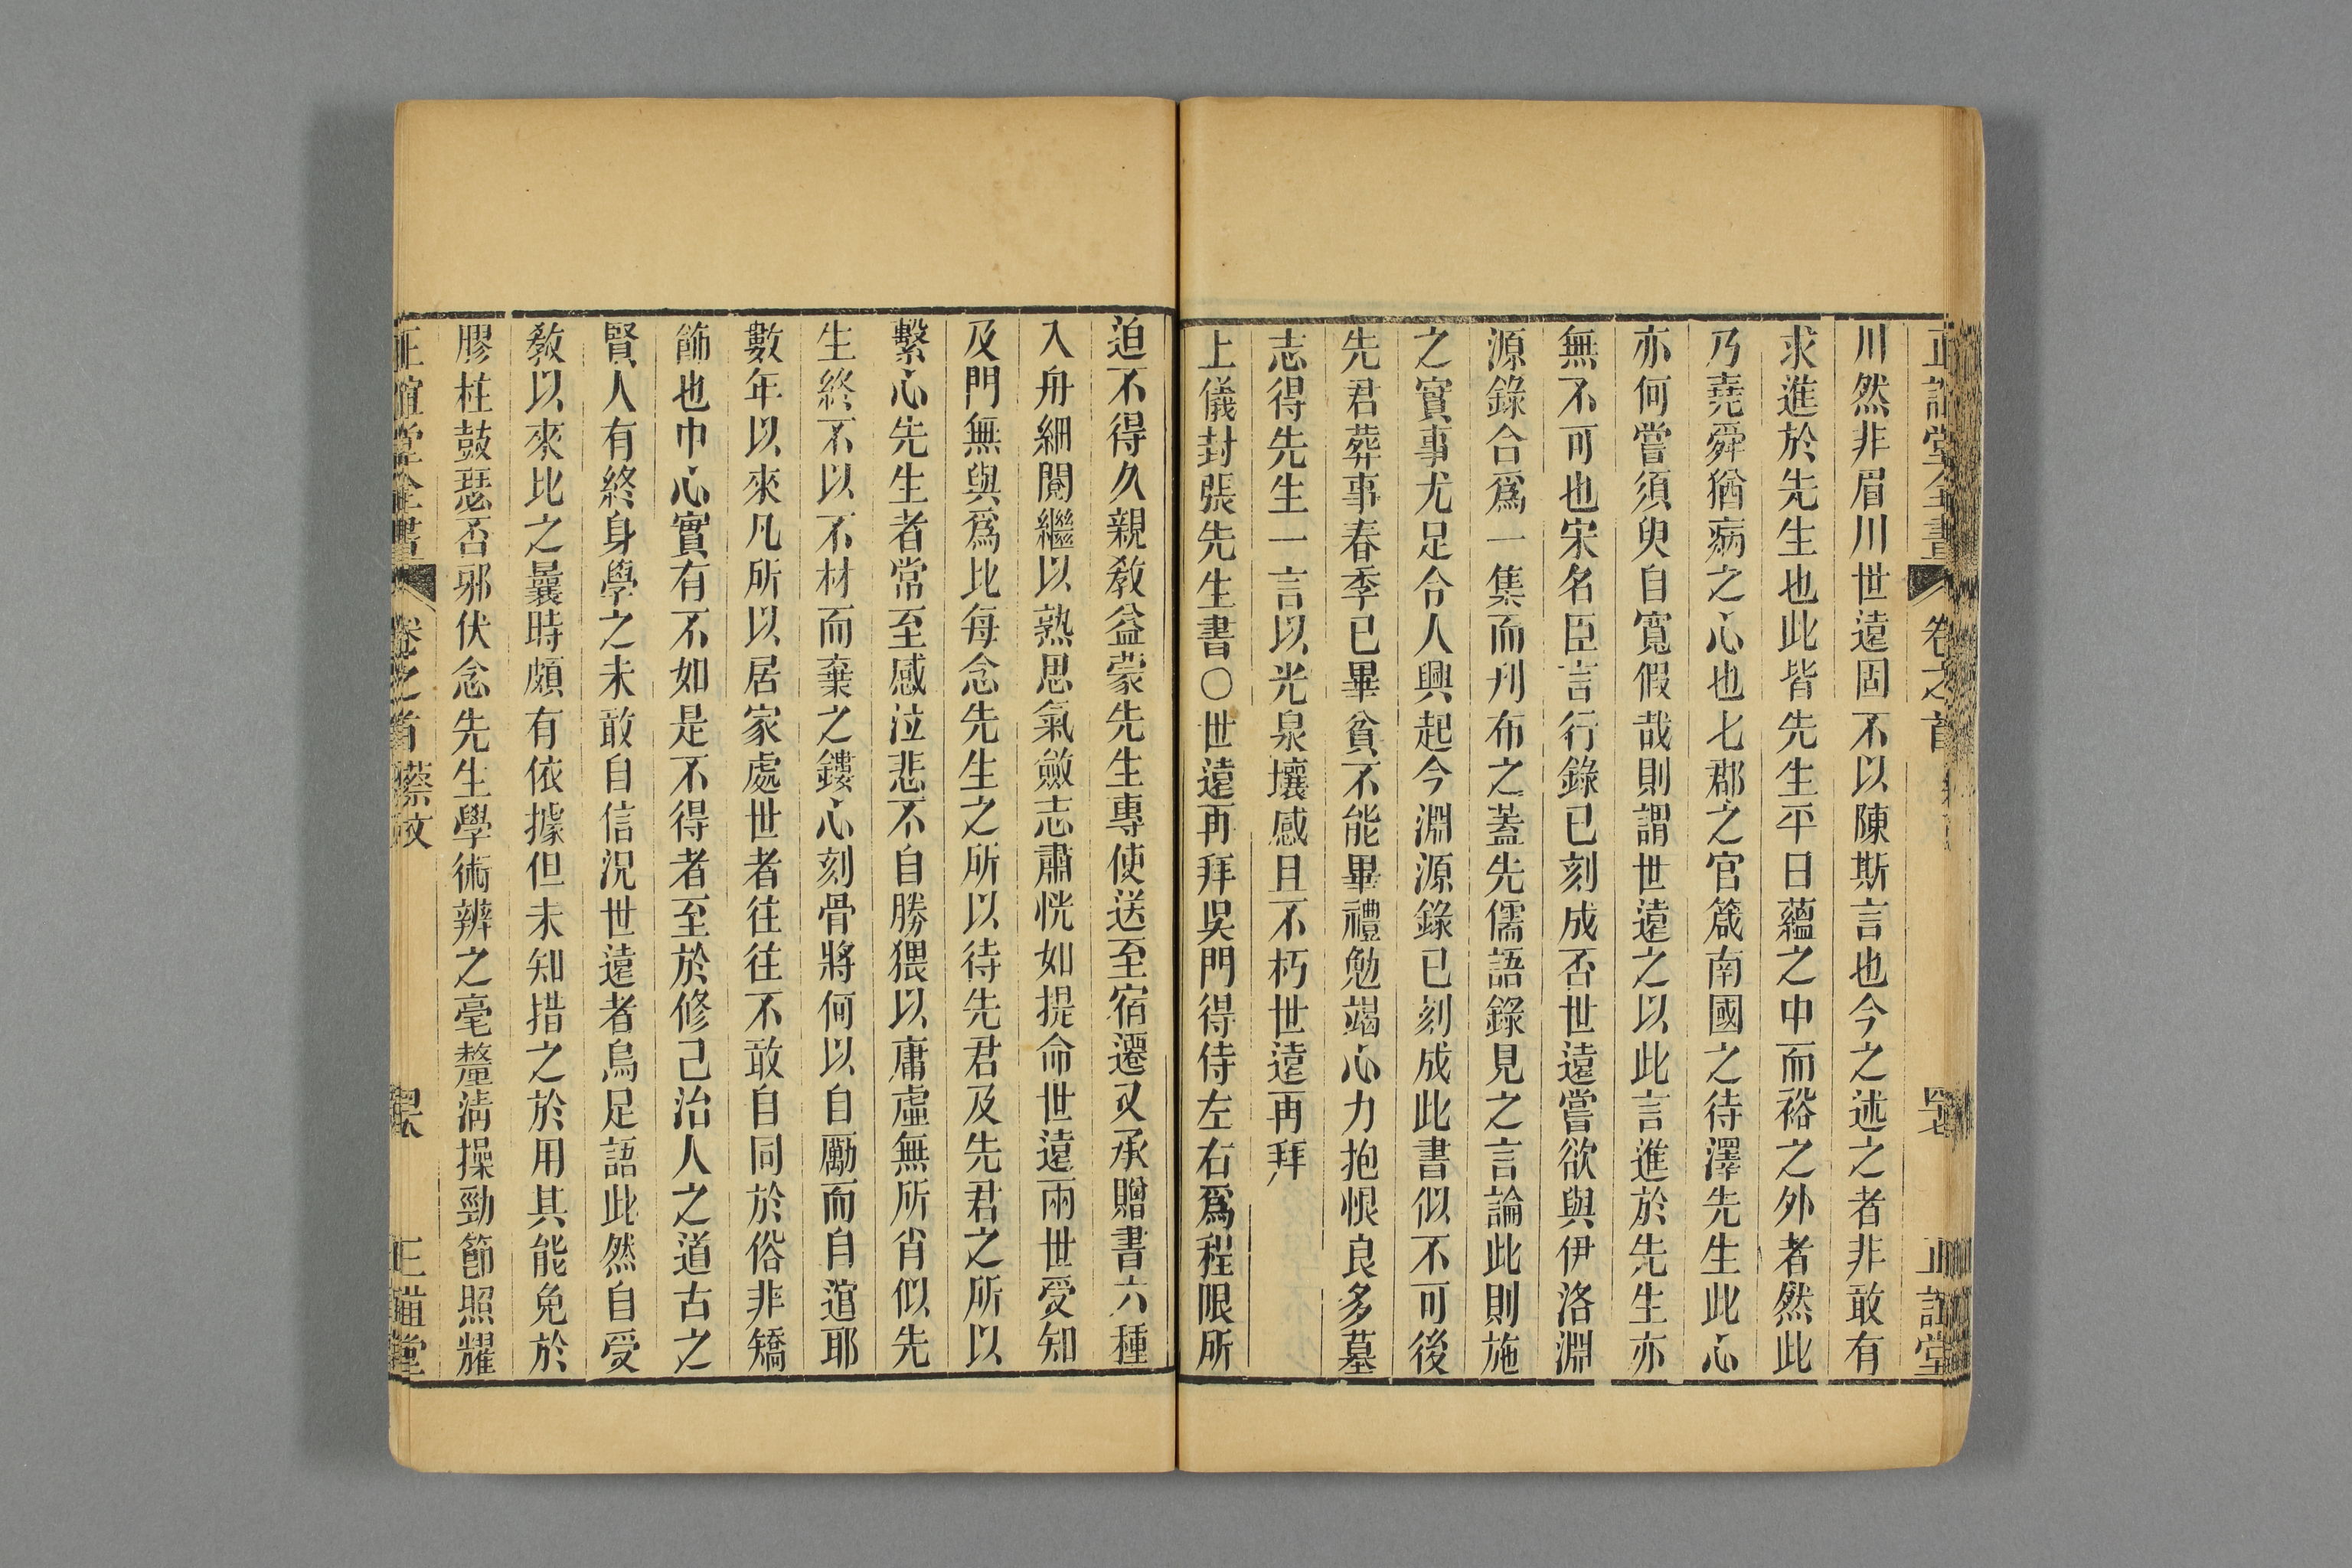 正誼堂全書 卷之首 四七 正誼堂
川然非眉川世遠固不以陳斯言也今之述之者非敢有
求進於先生也此皆先生平日蘊之中而裕之外者然此
乃堯舜猶病之心也七郡之官箴南國之待澤先生此心
亦何嘗須臾自寬假哉則謂世遠之以此言進於先生亦
無不可也宋名臣言行錄已刻成否世遠嘗欲與伊洛淵
源錄合爲一集而刋布之蓋先儒語錄見之言論此則施
之實事尤足令人興起今淵源錄已刻成此書似不可後
先君葬事春季已畢貧不能畢禮勉竭心力抱恨良多墓
志得先生一言以光泉壤感且不朽世遠再拜
上儀封張先生書○世遠再拜吳門得侍左右爲程限所
迫不得久親敎益蒙先生專使送至宿遷又承贈書六種
入舟細閱繼以熟思氣斂志肅恍如提命世遠兩世受知
及門無與爲比每念先生之所以待先君及先君之所以
繫心先生者常至感泣悲不自勝猥以庸虛無所肖似先
生終不以不材而棄之鏤心刻骨將何以自勵而自逭耶
數年以來凡所以居家處世者往往不敢自同於俗非矯
飾也中心實有不如是不得者至於修己治人之道古之
賢人有終身學之未敢自信況世遠者烏足語此然自受
敎以來比之曩時頗有依據但未知措之於用其能免於
膠柱鼓瑟否邪伏念先生學術辨之毫釐淸操勁節照耀
正誼堂全書 卷之首 蔡文 正誼堂